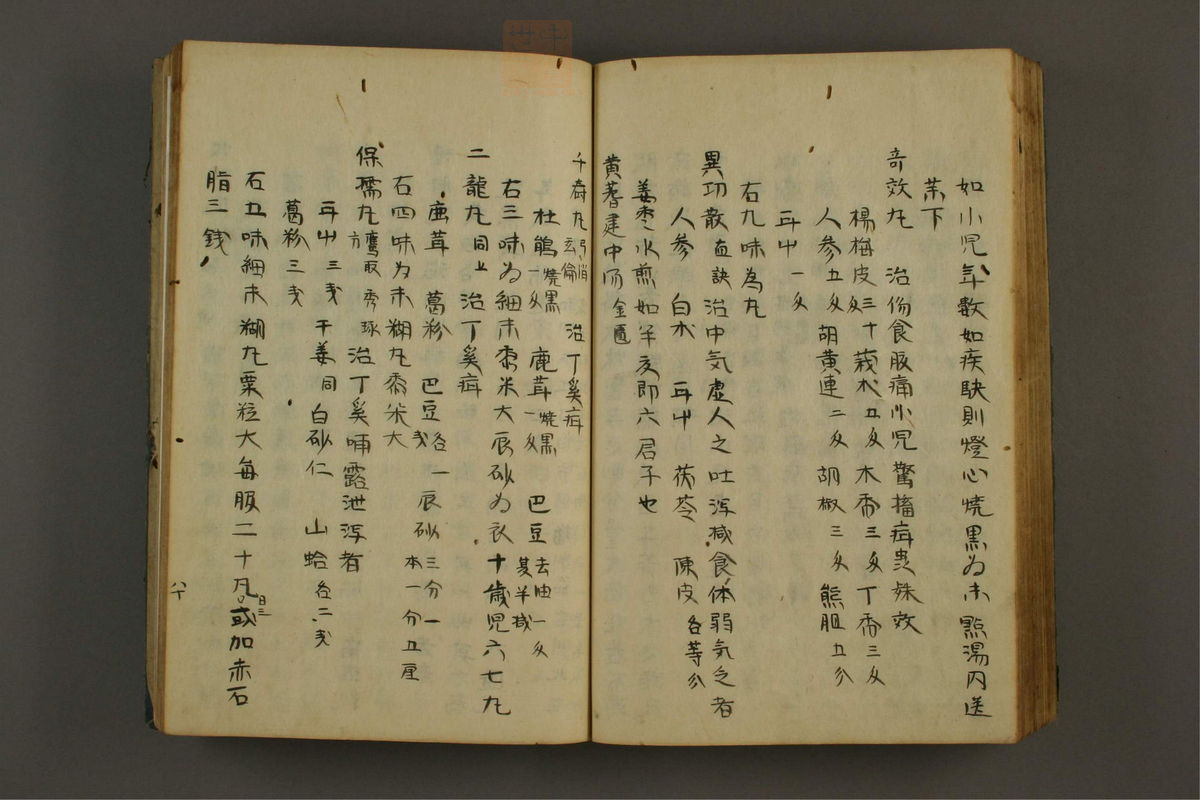 如小児年数如疾駃則燈心焼黒為末點湯内送
茉下
奇效丸　治傷食腹痛小児驚搐疳蟲殊效
楊梅皮三十匁　莪朮五匁　木香三匁　丁香三匁
人参五匁　胡黄連二匁　胡椒三匁　熊胆五分
耳屮一匁
右九味為丸
異功散　直訣　治中気虚人之吐泻椷食体弱気乏者
人参　白朮　耳屮　茯苓　陳皮　各等分
姜枣水煎如半夏即六君子也
黄蓍建中湯　金匱
千　丸　治丁奚疳
杜鵑焼黒一匁　鹿茸焼黒一匁　巴豆去油一匁
右三味為細末黍米大辰砂為衣十歳児六七丸
二龍丸　同上　治丁奚疳
鹿茸　葛粉　巴豆各一戋　辰砂三分一本一分五厘
右四味为末糊丸黍米大
保孺丸　方鷹取秀琢　治丁奚哺露泄泻者
耳屮三戋　干姜同　白砂仁　山蛤各二戋
葛粉三戋
右五味細末糊丸粟粒大毎服二十丸日三或加赤石
脂三銭
八十